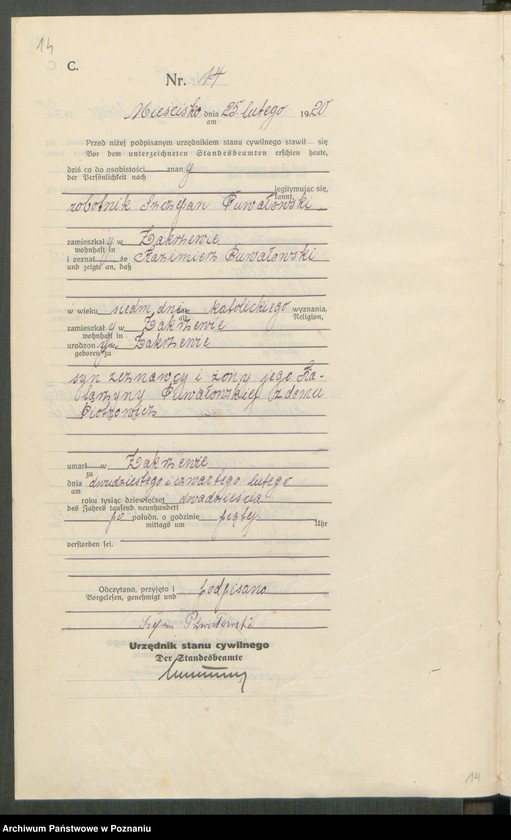 14
C.
Nr. 14
Mieścisko dnia 25 lutego 1920
am
Przed niżej podpisanym urzędnikiem stanu cywilnego stawił się
Vor dem unterzeichneten Standesbeamten erschien heute,
dziś co do osobistości znany
der Persönlichkeit nach
legitymując się,
kannt,
robotnik Szczepan Puwałowski
zamieszkały w Zakrzewie
wohnhaft in
i zeznał, że Kazimierz Puwałowski
und zeigte an, daß
w wieku siedm dni katolickiego wyznania,
alt Religion,
zamieszkały w Zakrzewie
wohnhaft in
urodzony w Zakrzewie
geboren zu
syn zeznawcy i żony jego Ka-
tarzyny Puwałowskiej z domu
Piotrowicz
umarł w Zakrzewie
zu
dnia dwudziestego i czwartego lutego
am
roku tysiąc dziewięćset dwadzieścia
des Jahres tausend neunhundert
po połudn. o godzinie piątej
mittags um Uhr
verstorben sei.
Odczytano, przyjęto i podpisano
Vorgelesen, genehmigt und
Urzędnik stanu cywilnego
Der Standesbeamte
14
Archiwum Państwowe w Poznaniu